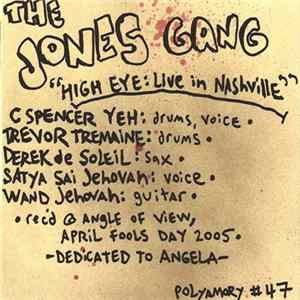 THE
JONES GANG
"HIGH EYE: Live in NASHVILLE"
C SPENCER YEH: drums, voice •
TREVOR TREMAINE: drums •
DEREK de SOLEIL: sax •
SATYA SAI JEHOVAH: voice •
WAND JEHOVAH: guitar •
• rec'd @ ANGLE OF VIEW,
APRIL FOOLS DAY 2005 •
-DEDICATED TO ANGELA-
POLYAMORY #47